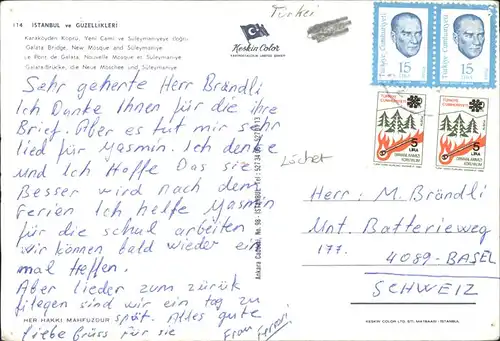 114 ISTANBUL ve GÜZELLİKLERİ
Karaköyden Köprü, Yeni Cami ve Süleymaniye
Galata Bridge, New Mosque and Süleymaniye
Le Pont de Galata, Nouvelle Mosquée et Süleymaniye
Galata-Brücke, die Neue Moschee und Süleymaniye
Keskin Color
Türkei
Sehr geherte Herr Brändli
Ich Danke Ihnen für die ihre
Brief. Aber es tut mir sehr
lied für Yasmin. Ich denke
und Ich Hoffe Das sie
Besser wird nach dem
Ferien Ich helfe Yasmin
für die schul arbeiten
wir können bald wieder ein
mal treffen.
Aber lieder zum zürük
fliegen sind wir ein tag zu
spät. Alles gute
liebe Grüss für sie
Frau
HER HAKKI MAHFUZDUR
Ankara Caddesi, No. 98 - ISTANBUL - Tel:
Türkiye Cumhuriyeti
15
LİRA
Türkiye Cumhuriyeti
15
LİRA
TÜRKİYE
CUMHURİYETİ
5
LİRA
TÜRKİYE
CUMHURİYETİ
5
LİRA
Herr: M. Brändli
Unt. Batterieweg
177.
4089-BASEL
SCHWEIZ
KESKIN COLOR LTD. ŞTİ. MATBAASI - İSTANBUL